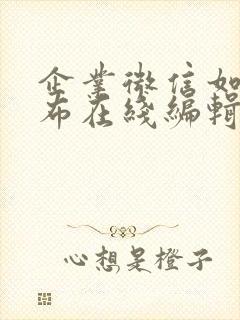 企業微信如
布在綫編輯
心想是橙子